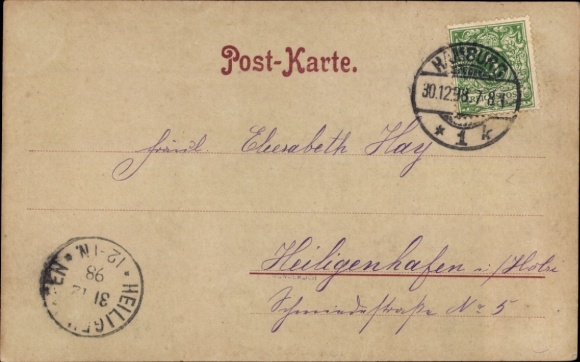 Post-Karte.
HAMBURG
30.12.98. 7-8
* 1 k
Fräul. Elisabeth Hay
Heiligenhafen i/Holst
Schmiedestraße No 5
* HEILIGENHAFEN *
31 12
98
12-1N.